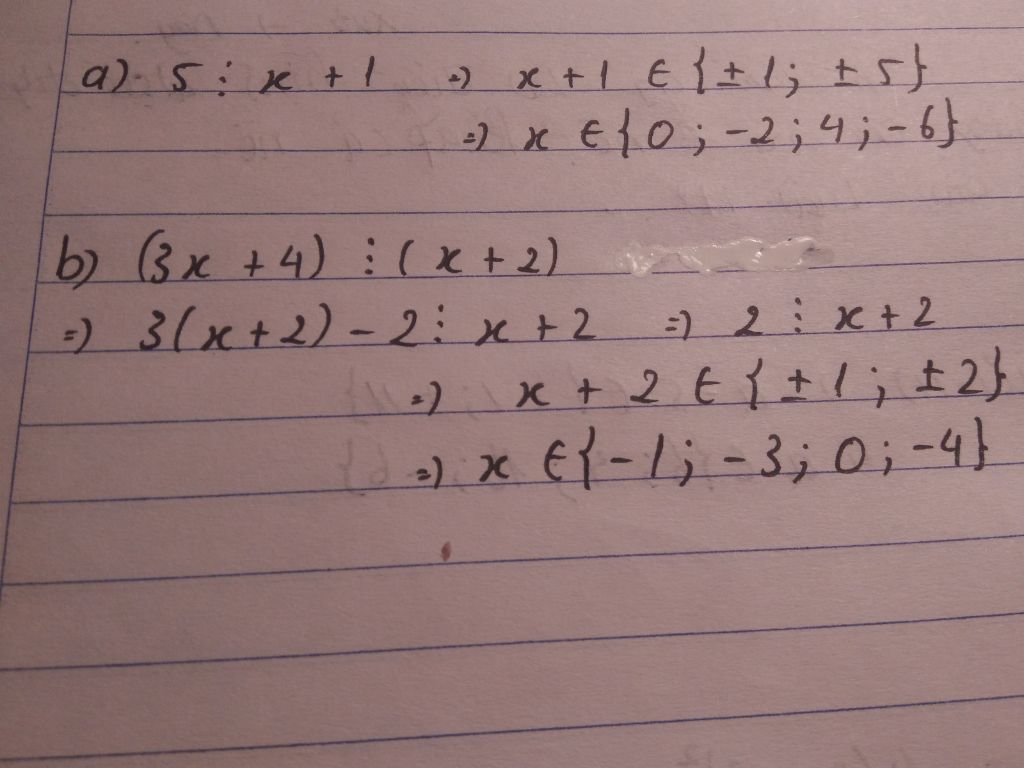 a) 5 ⋮ x + 1 => x + 1 ∈ {± 1; ± 5}
=> x ∈ {0; -2; 4; -6}
b) (3x + 4) ⋮ (x + 2)
=> 3(x + 2) - 2 ⋮ x + 2 => 2 ⋮ x + 2
=> x + 2 ∈ {± 1; ± 2}
=> x ∈ {-1; -3; 0; -4}